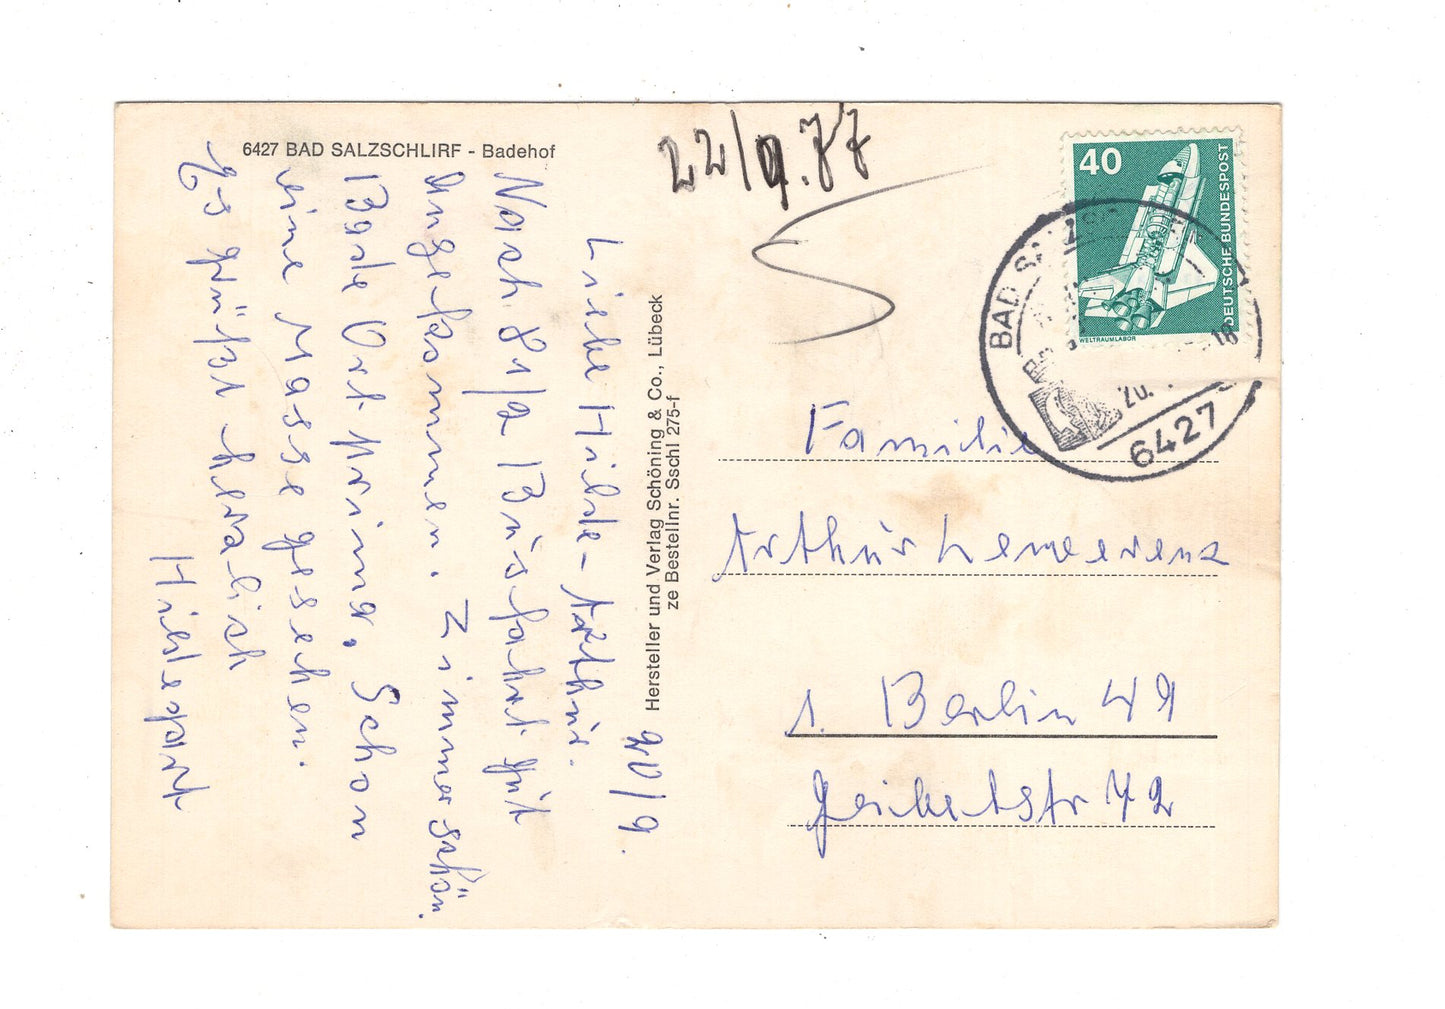 6427 BAD SALZSCHLIRF - Badehof
22/9.77
20/9.
Liebe Hilde - Arthur.
Nach 8 1/2 Busfahrt gut
angekommen. Zimmer schön.
Bade Ort prima. Schon
eine Masse gesehen.
Es grüßt herzlich
Hildegart
Hersteller und Verlag Schöning & Co., Lübeck
ze Bestellnr. Sschl 275-f
40
DEUTSCHE BUNDESPOST
WELTRAUMLABOR
BAD SALZ
20.
18
6427
Familie
Arthur
1. Berlin 49
72